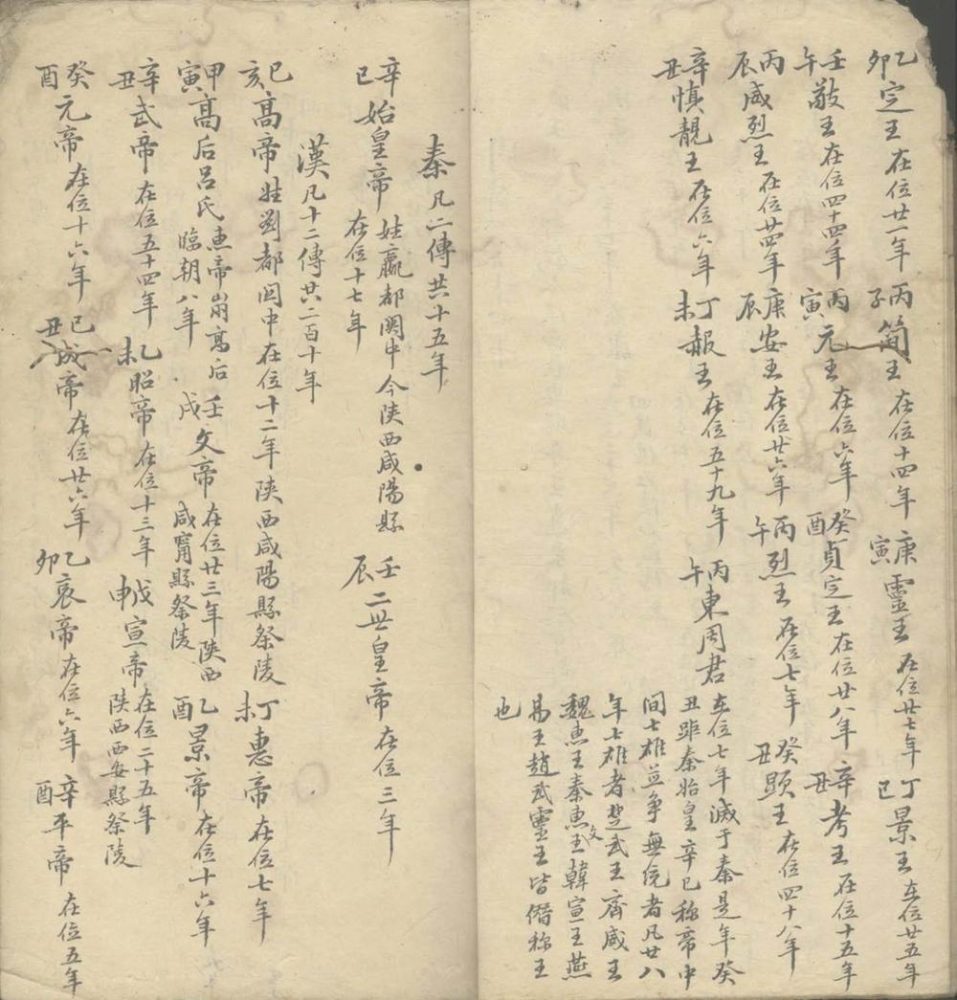 乙卯定王在位廿一年 丙子简王在位十四年 庚寅靈王在位廿七年 丁巳景王在位廿五年
壬午敬王在位四十四年 丙寅元王在位六年 癸酉貞定王在位廿八年 辛丑考王在位十五年
丙辰威烈王在位廿四年 庚辰安王在位廿六年 丙午烈王在位七年 癸丑顯王在位四十八年
辛丑慎靚王在位六年 丁未赧王在位五十九年 丙午東周君 在位七年滅于秦是年癸
丑距秦始皇辛巳称帝中
间七雄並争無统者凡廿八
年七雄者楚武王齊威王
魏惠王秦惠文王韓宣王燕
易王趙武靈王皆僭称王
也
秦凡二傳共十五年
辛巳始皇帝 姓嬴都関中今陕西咸陽縣 壬辰二世皇帝在位三年
在位十七年
漢凡十二傳共二百十年
己亥高帝姓劉都関中在位十二年陕西咸陽縣祭陵 丁未惠帝在位七年
甲寅高后吕氏 惠帝崩高后臨朝八年 壬戌文帝 在位廿三年陕西咸甯縣祭陵 乙酉景帝在位十六年
辛丑武帝在位五十四年 乙未昭帝在位十三年 戊申宣帝 在位二十五年陕西西安縣祭陵
癸酉元帝在位十六年 己丑成帝在位廿六年 乙卯哀帝在位六年 辛酉平帝在位五年